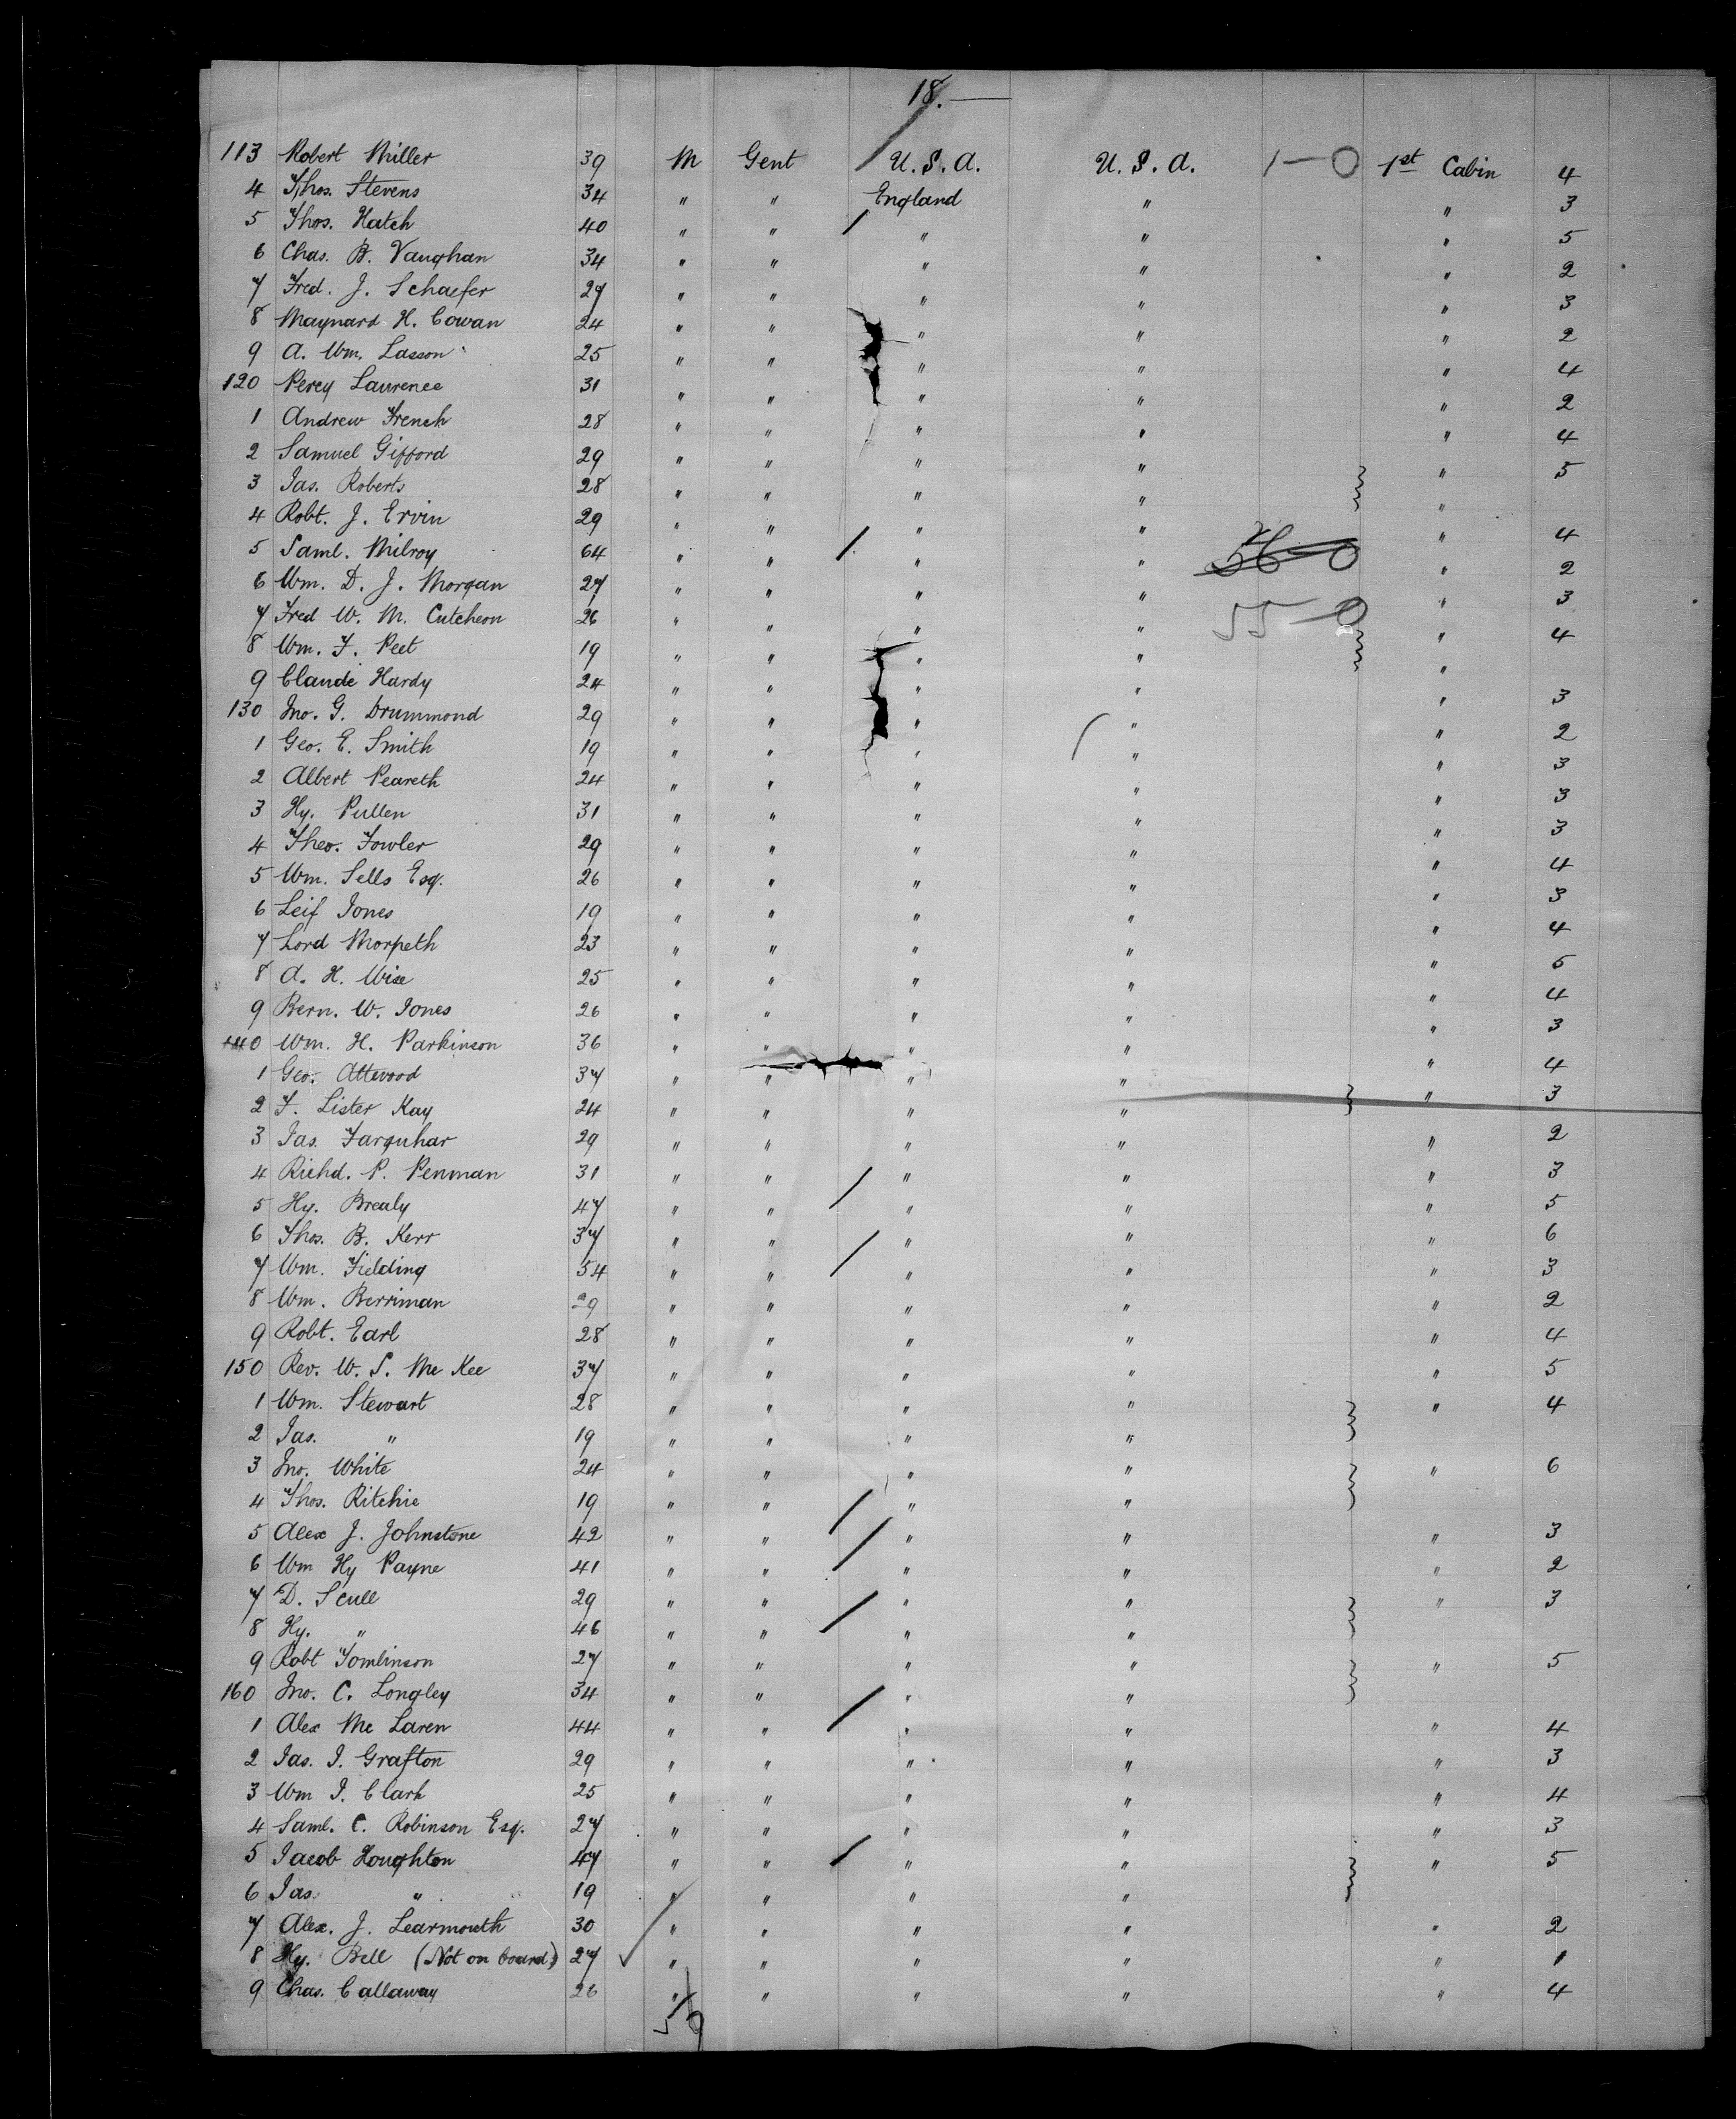 18.—
113 Robert Miller 39 M Gent U.S.A. U.S.A. 1—0 1st Cabin 4
4 Thos. Stevens 34 " " England " " 3
5 Thos. Hatch 40 " " " " " 5
6 Chas. B. Vaughan 34 " " " " " 2
7 Fred. J. Schaefer 27 " " " " " 3
8 Maynard H. Cowan 24 " " " " " 2
9 A. Wm. Lasson 25 " " " " " 4
120 Percy Laurence 31 " " " " " 2
1 Andrew French 28 " " " " " 4
2 Samuel Gifford 29 " " " " " 5
3 Jas. Roberts 28 " " " " "
4 Robt. J. Ervin 29 " " " " " 4
5 Saml. Milroy 64 " " " " 56—0 " 2
6 Wm. D. J. Morgan 27 " " " " " 3
7 Fred W. M. Cutcheon 26 " " " " 55—0 " 4
8 Wm. F. Peet 19 " " " " "
9 Claude Hardy 24 " " " " " 3
130 Jno. G. Drummond 29 " " " " " 2
1 Geo. E. Smith 19 " " " " " 3
2 Albert Peareth 24 " " " " " 3
3 Hy. Pullen 31 " " " " " 3
4 Theo. Fowler 29 " " " " " 4
5 Wm. Sells Esq. 26 " " " " " 3
6 Leif Jones 19 " " " " " 4
7 Lord Morpeth 23 " " " " " 5
8 A. H. Wise 25 " " " " " 4
9 Bern. W. Jones 26 " " " " " 3
140 Wm. H. Parkinson 36 " " " " " 4
1 Geo. Attwood 37 " " " " " 3
2 F. Lister Kay 24 " " " "
3 Jas. Farquhar 29 " " " " " 2
4 Richd. P. Penman 31 " " " " " 3
5 Hy. Brealy 47 " " " " " 5
6 Thos. B. Kerr 37 " " " " " 6
7 Wm. Fielding 54 " " " " " 3
8 Wm. Berriman 29 " " " " " 2
9 Robt. Earl 28 " " " " " 4
150 Rev. W. S. Mc Kee 37 " " " " " 5
1 Wm. Stewart 28 " " " " " 4
2 Jas. " 19 " " " "
3 Jno. White 24 " " " " " 6
4 Thos. Ritchie 19 " " " "
5 Alex J. Johnstone 42 " " " " " 3
6 Wm Hy Payne 41 " " " " " 2
7 D. Scull 29 " " " " " 3
8 Hy. " 46 " " " "
9 Robt Tomlinson 27 " " " " " 5
160 Jno. C. Longley 34 " " " "
1 Alex Mc Laren 44 " " " " " 4
2 Jas. I. Grafton 29 " " " " " 3
3 Wm J. Clark 25 " " " " " 4
4 Saml. C. Robinson Esq. 27 " " " " " 3
5 Jacob Houghton 47 " " " " " 5
6 Jas. " 19 " " " "
7 Alex. J. Learmouth 30 " " " " " 2
8 Hy. Bell (Not on board) 27 ✓ " " " " " 1
9 Chas. Callaway 26 " " " " " 4